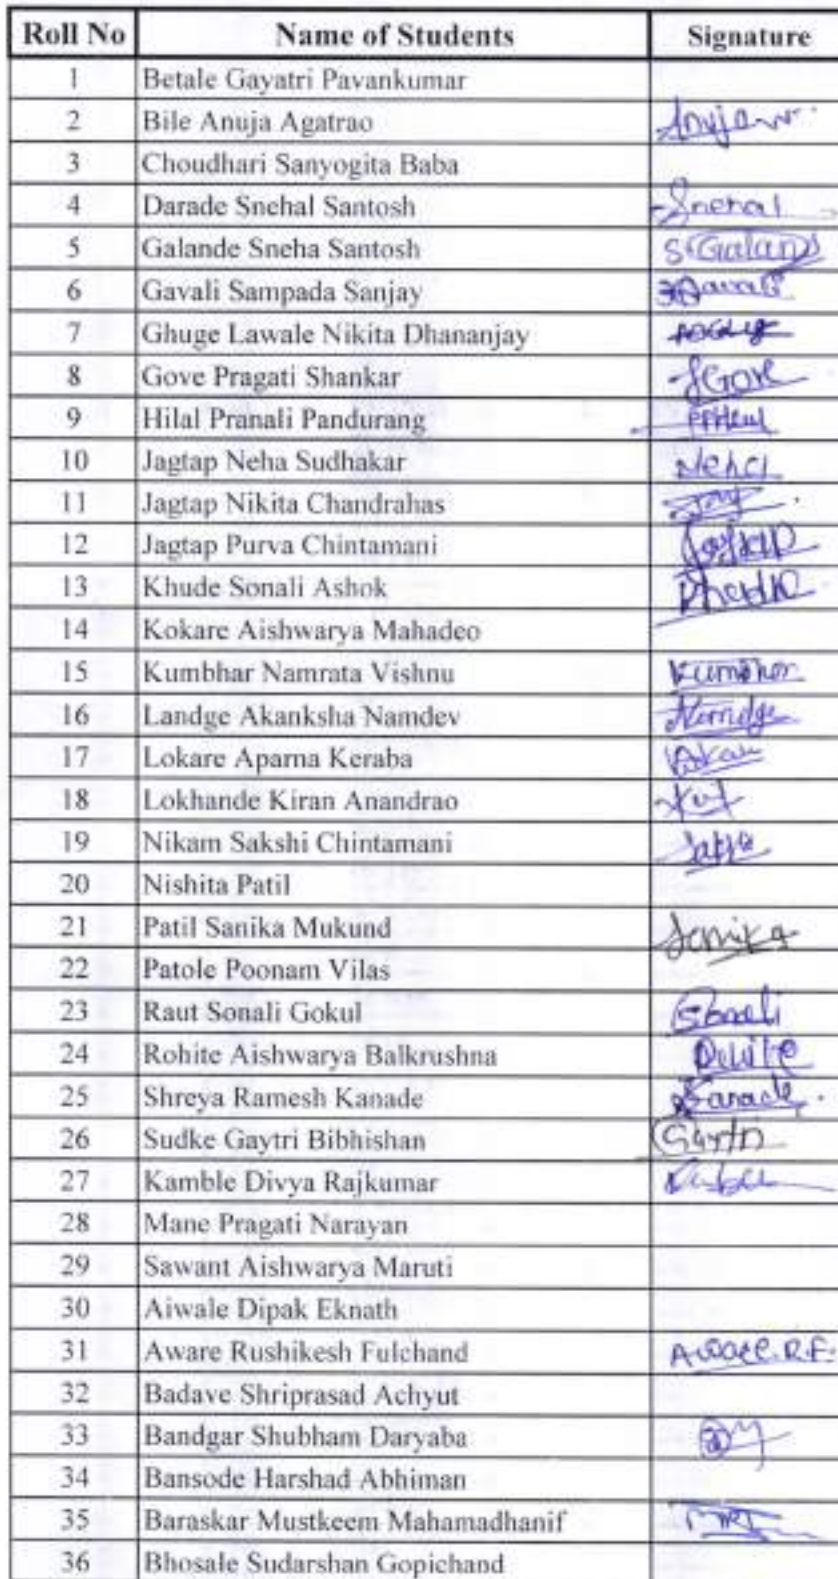 Roll No Name of Students Signature
1 Betale Gayatri Pavankumar
2 Bile Anuja Agatrao Anuja
3 Choudhari Sanyogita Baba
4 Darade Snehal Santosh Snehal
5 Galande Sneha Santosh
6 Gavali Sampada Sanjay
7 Ghuge Lawale Nikita Dhananjay
8 Gove Pragati Shankar Gove
9 Hilal Pranali Pandurang
10 Jagtap Neha Sudhakar Neha
11 Jagtap Nikita Chandrahas
12 Jagtap Purva Chintamani
13 Khude Sonali Ashok
14 Kokare Aishwarya Mahadeo
15 Kumbhar Namrata Vishnu Kumbhar
16 Landge Akanksha Namdev
17 Lokare Aparna Keraba
18 Lokhande Kiran Anandrao
19 Nikam Sakshi Chintamani
20 Nishita Patil
21 Patil Sanika Mukund Sanika
22 Patole Poonam Vilas
23 Raut Sonali Gokul Sonali
24 Rohite Aishwarya Balkrushna
25 Shreya Ramesh Kanade
26 Sudke Gaytri Bibhishan
27 Kamble Divya Rajkumar
28 Mane Pragati Narayan
29 Sawant Aishwarya Maruti
30 Aiwale Dipak Eknath
31 Aware Rushikesh Fulchand Aware R.F.
32 Badave Shriprasad Achyut
33 Bandgar Shubham Daryaba
34 Bansode Harshad Abhiman
35 Baraskar Mustkeem Mahamadhanif
36 Bhosale Sudarshan Gopichand